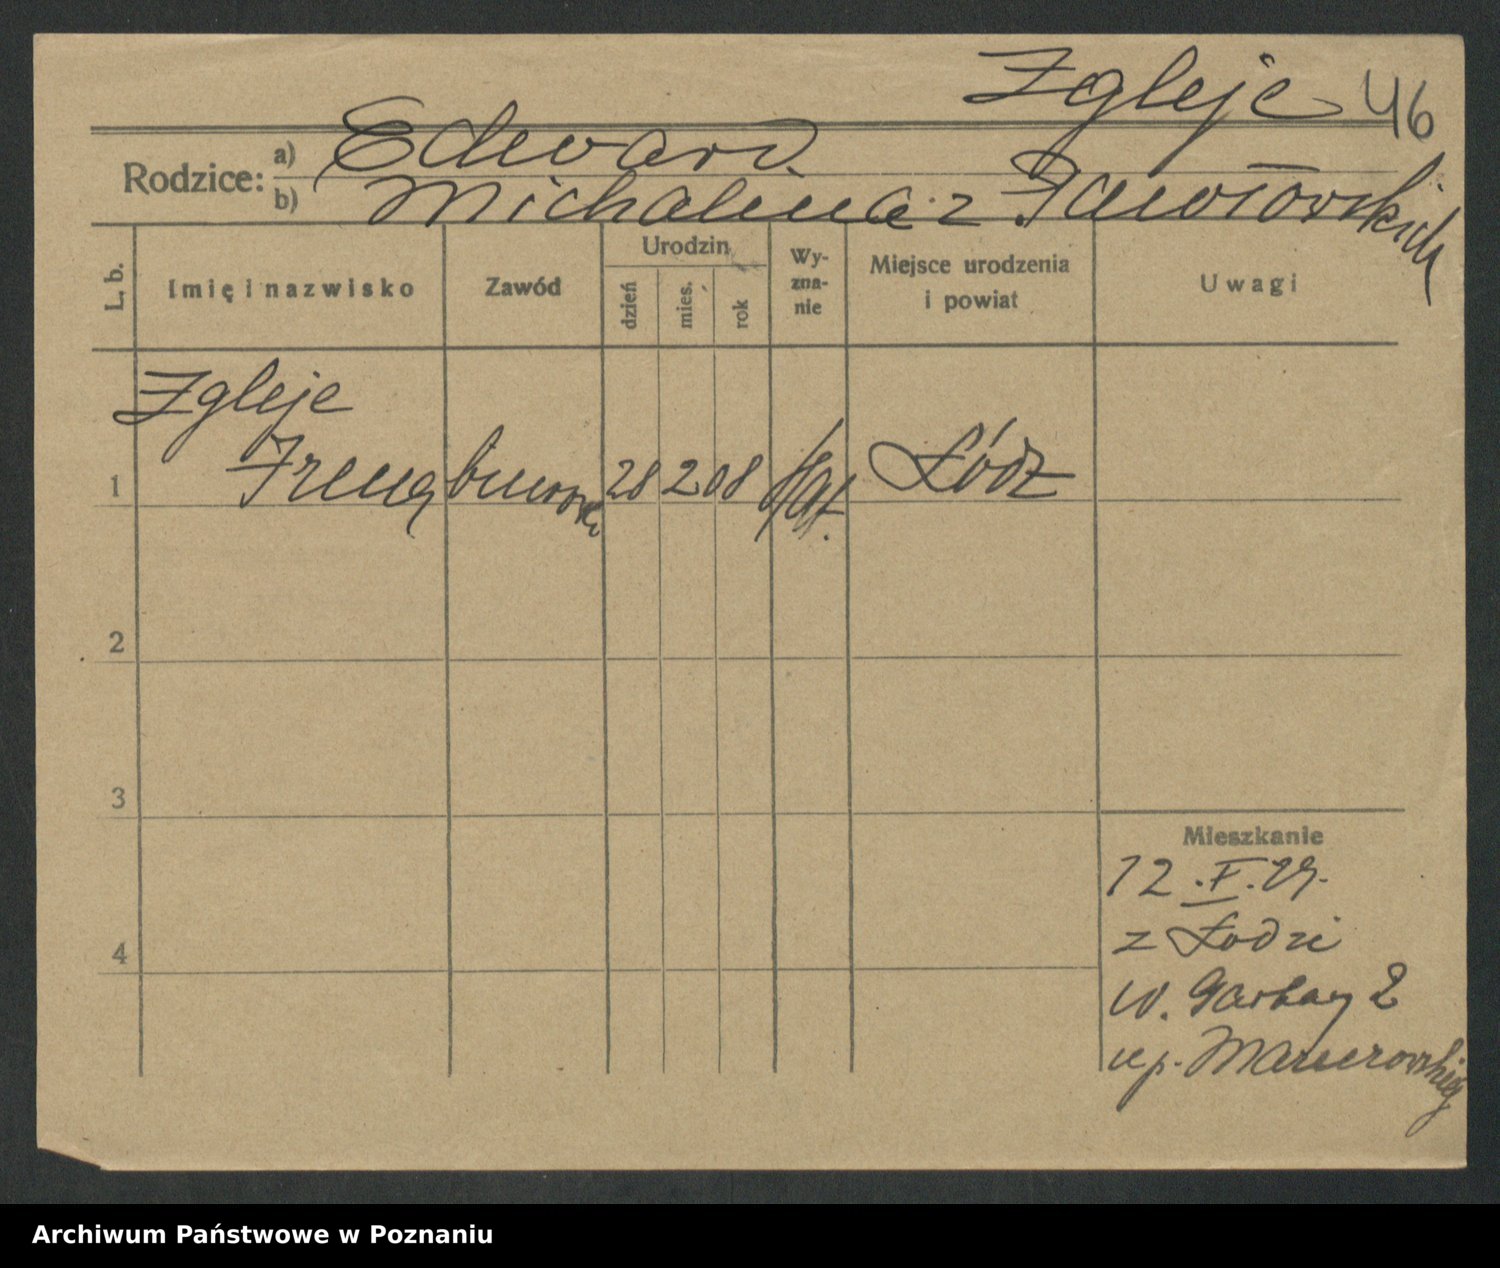 Zgleje 46
Rodzice: a) Edward
b) Michalina z Pawłowskich
L. b.
Imię i nazwisko
Zawód
Urodzin
dzień
mies.
rok
Wy-
zna-
nie
Miejsce urodzenia
i powiat
Uwagi
Zgleje
1 Irena biurowa 28 2 08 Łódź
2
3
4
Mieszkanie
12.V.29.
z Łodzi
W. Garbary 2
up. Manerowskiej
Archiwum Państwowe w Poznaniu